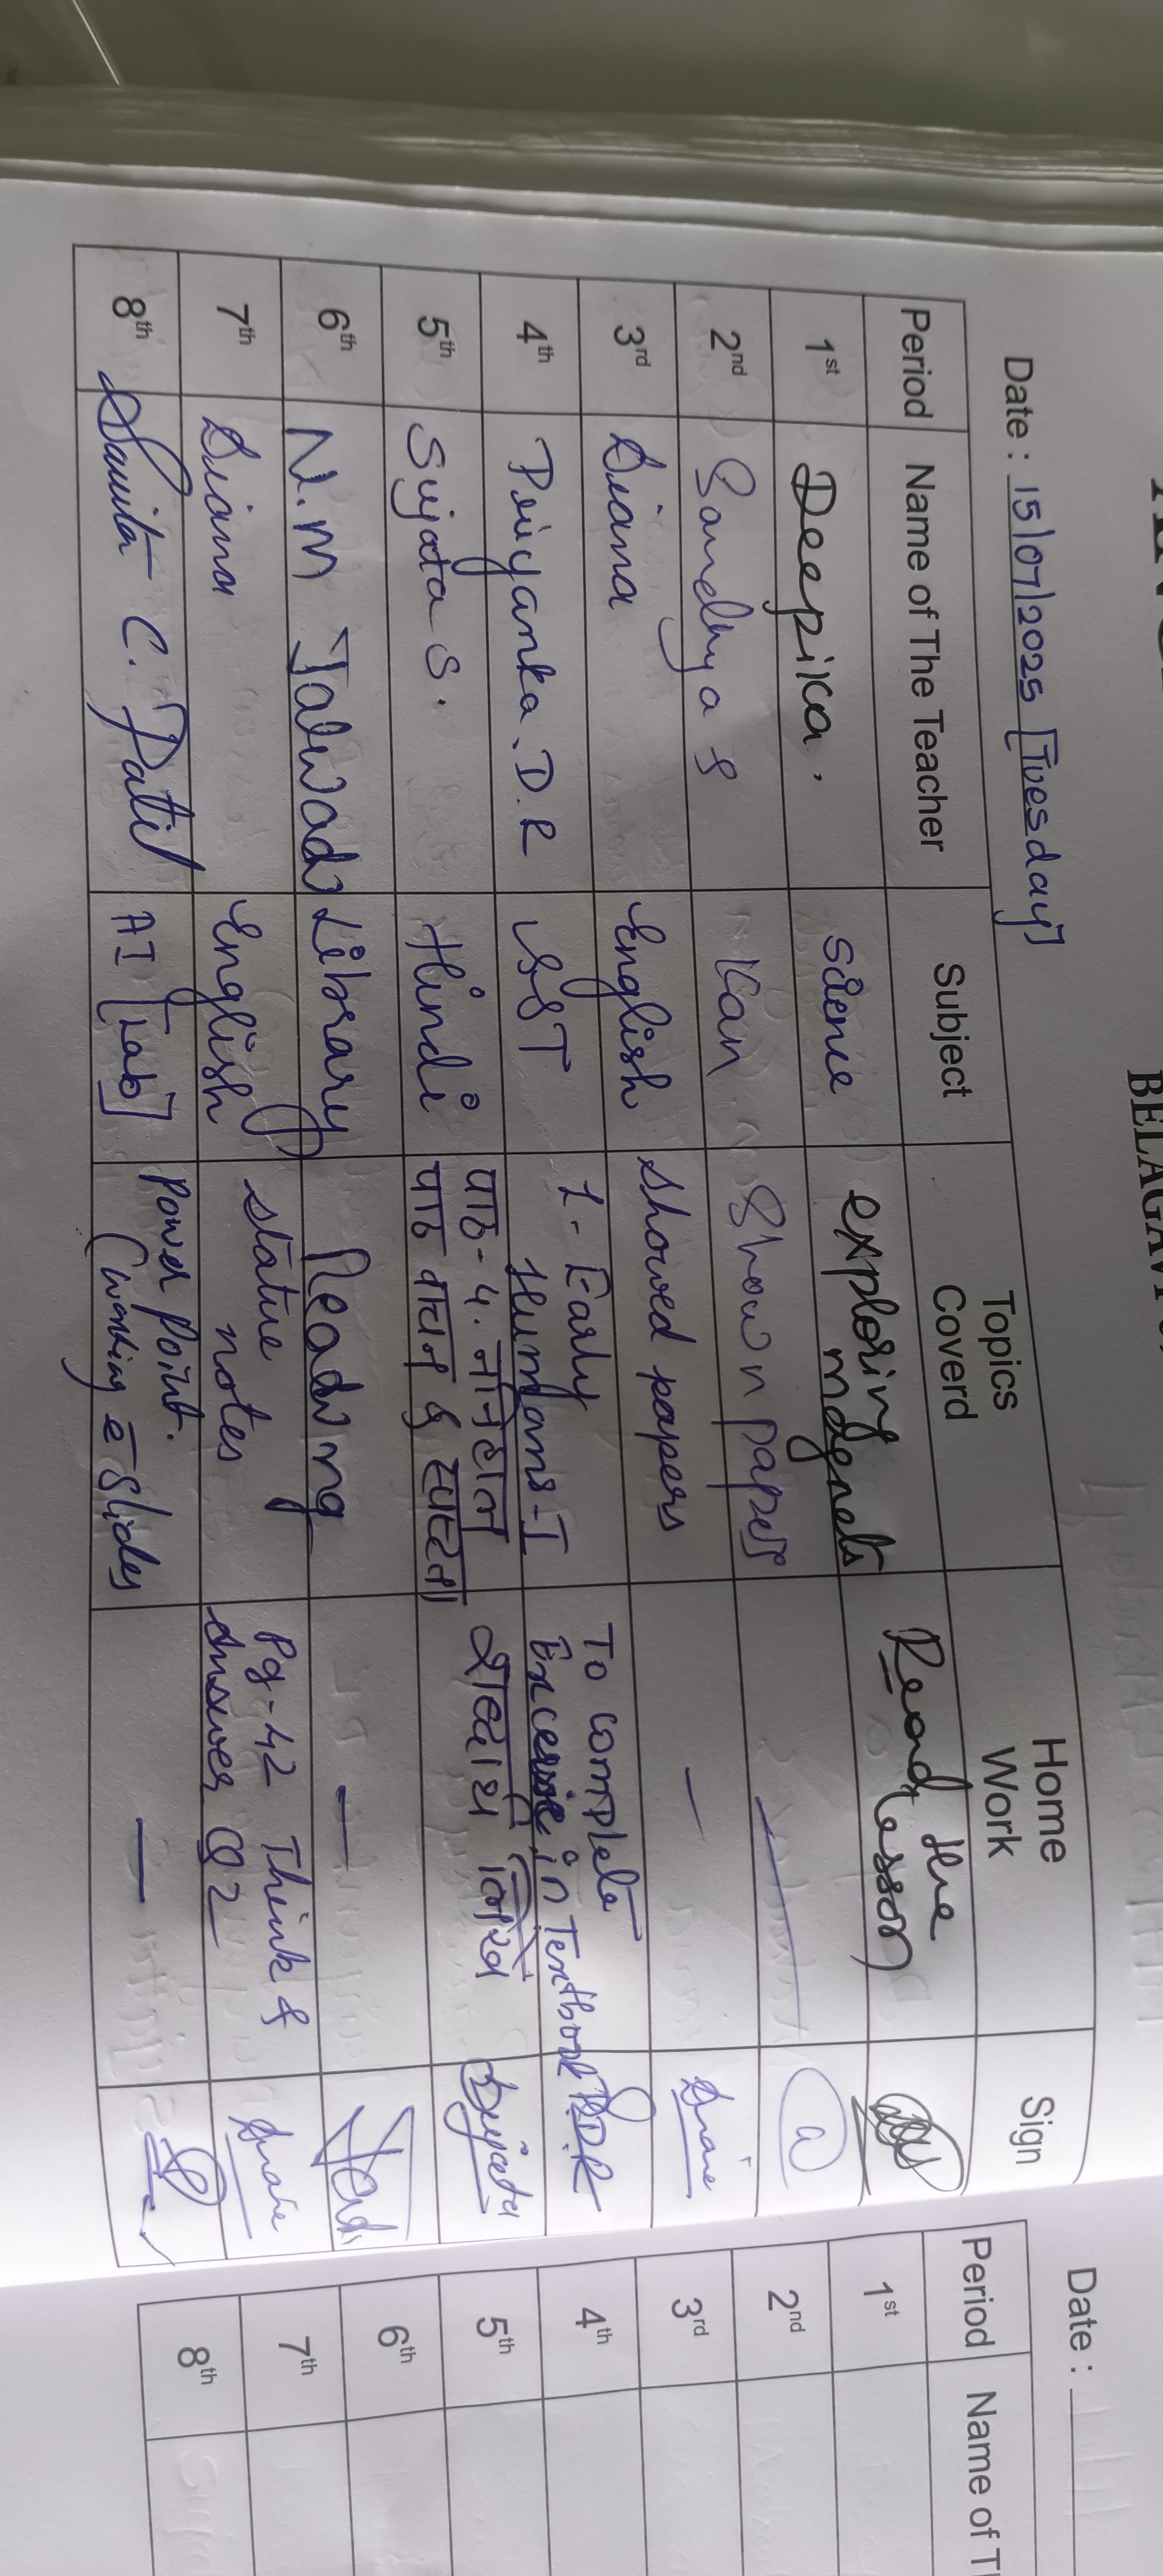 BELAGAVI
Date : 15/07/2025 [Tuesday]
Period Name of The Teacher Subject Topics Coverd Home Work Sign
1st Deepika. Science exploring magnets Read the lesson
2nd Sandhya S Kan Shown paper
3rd Diana English showed papers —
4th Priyanka.D.R SST 1-Early Humans-I To complete Exercise in Textbook PDR
5th Sujata S. Hindi पाठ-4. पाठ वाचन शब्दार्थ Sujata
6th N.M Talwad Library Reading —
7th Diana English statue notes Pg-42 Think & Answer Q2
8th Savita C. Patil AI [Lab] Power Point. (working = Slides —
Date :
Period Name of T
1st
2nd
3rd
4th
5th
6th
7th
8th